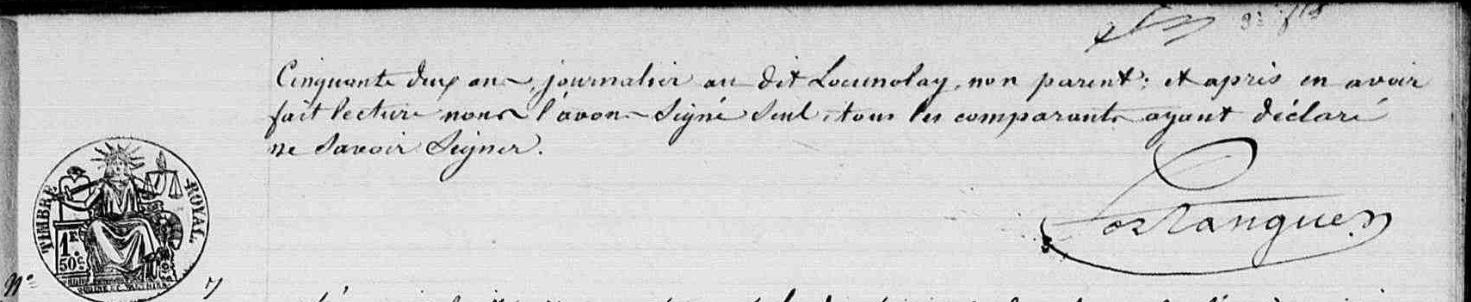 Cinquante deux ans, journalier au dit Locunolay, non parent; et après en avoir
fait lecture nous l'avons signé seul, tous les comparants ayant déclaré
ne savoir signer.
TIMBRE ROYAL
1F
50c
N°
7